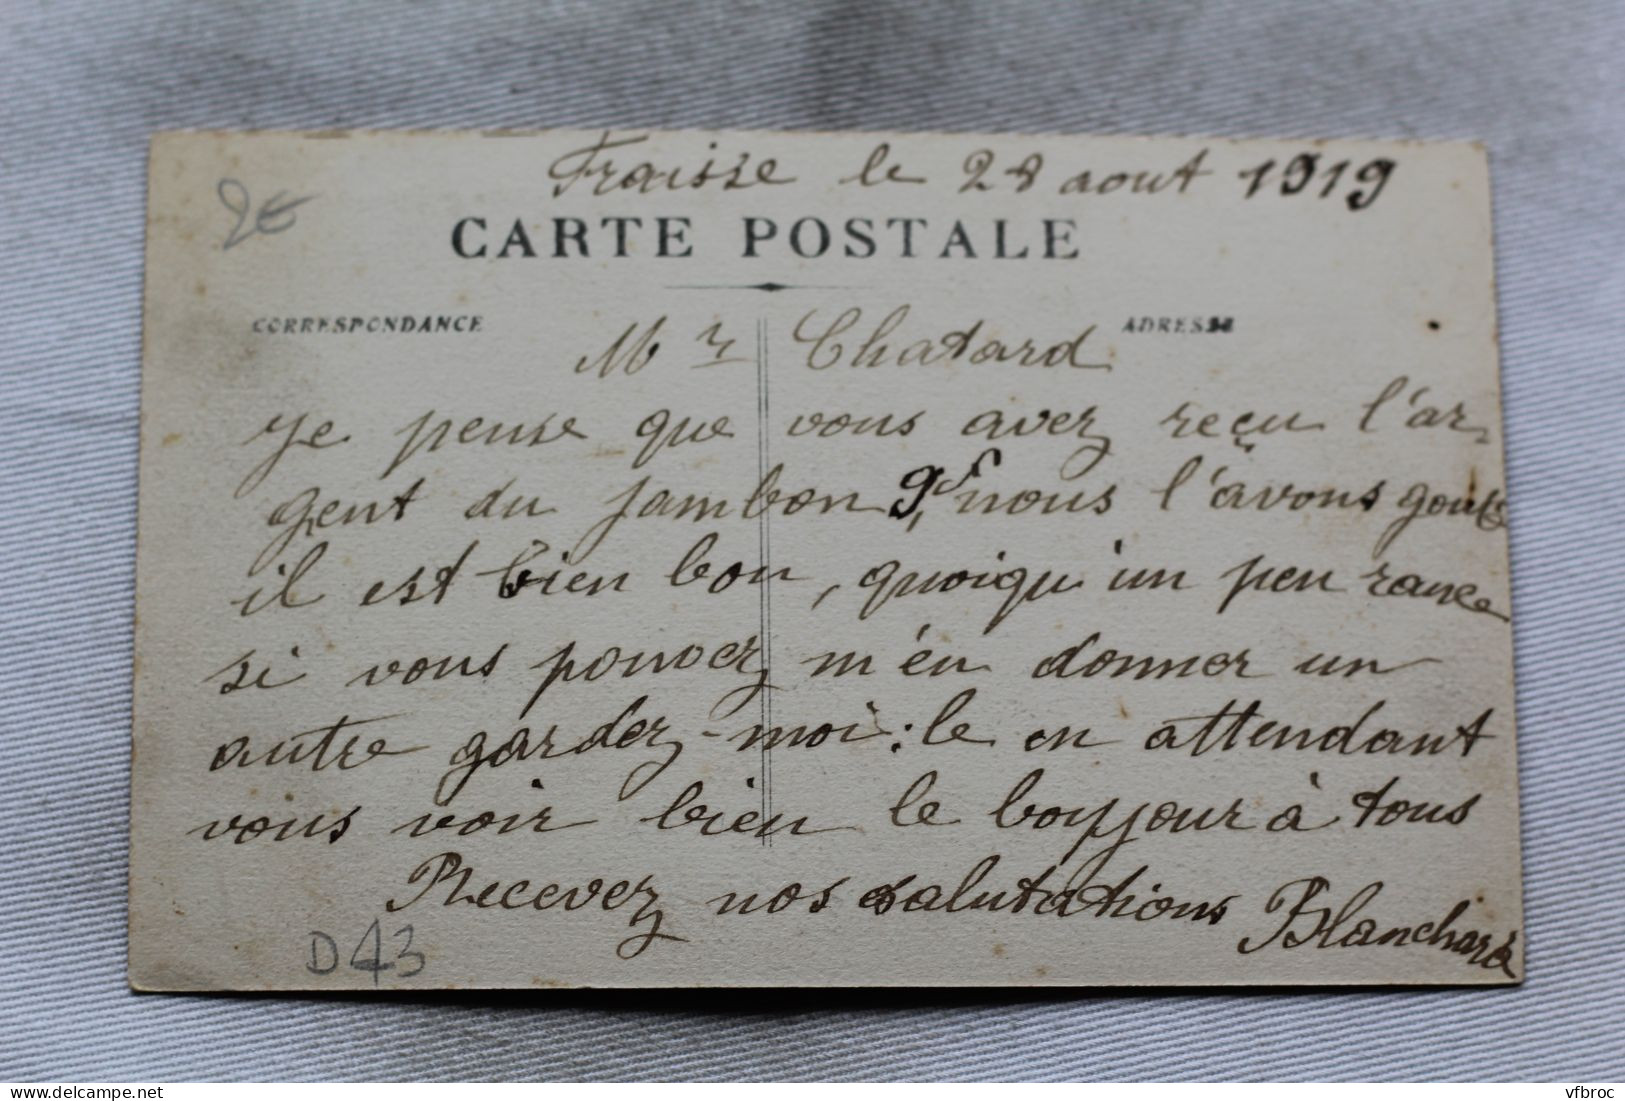 Fraisse le 28 aout 1919
2€
CARTE POSTALE
CORRESPONDANCE
ADRESSE
Mr Chatard
Je pense que vous avez reçu l'ar
gent du jambon, nous l'avons gouté
il est bien bon, quoiqu'un peu rance
si vous pouvez m'en donner un
autre gardez-moi: le en attendant
vous voir bien le bonjour à tous
Recevez nos salutations Blanchard
D43
vfbroc